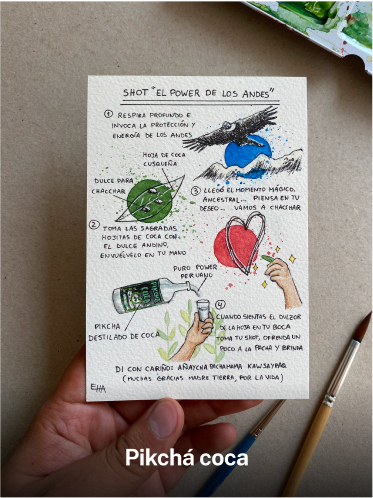 SHOT "EL POWER DE LOS ANDES"
① RESPIRA PROFUNDO E
INVOCA LA PROTECCIÓN Y
ENERGÍA DE LOS ANDES
HOJA DE COCA
CUSQUEÑA
DULCE PARA
CHACCHAR
② TOMA LAS SAGRADAS
HOJITAS DE COCA CON
EL DULCE ANDINO,
ENVUÉLVELO EN TU MANO
③ LLEGÓ EL MOMENTO MÁGICO,
ANCESTRAL... PIENSA EN TU
DESEO... VAMOS A CHACCHAR
PURO POWER
PERUANO
PIKCHA
DESTILADO DE COCA
④
CUANDO SIENTAS EL DULZOR
DE LA HOJA EN TU BOCA
TOMA TU SHOT, OFRENDA UN
POCO A LA PACHA Y BRINDA
DI CON CARIÑO: AÑAYCHA PACHAMAMA KAWSAYPAQ
(MUCHAS GRACIAS MADRE TIERRA, POR LA VIDA)
EHA
Pikchá coca